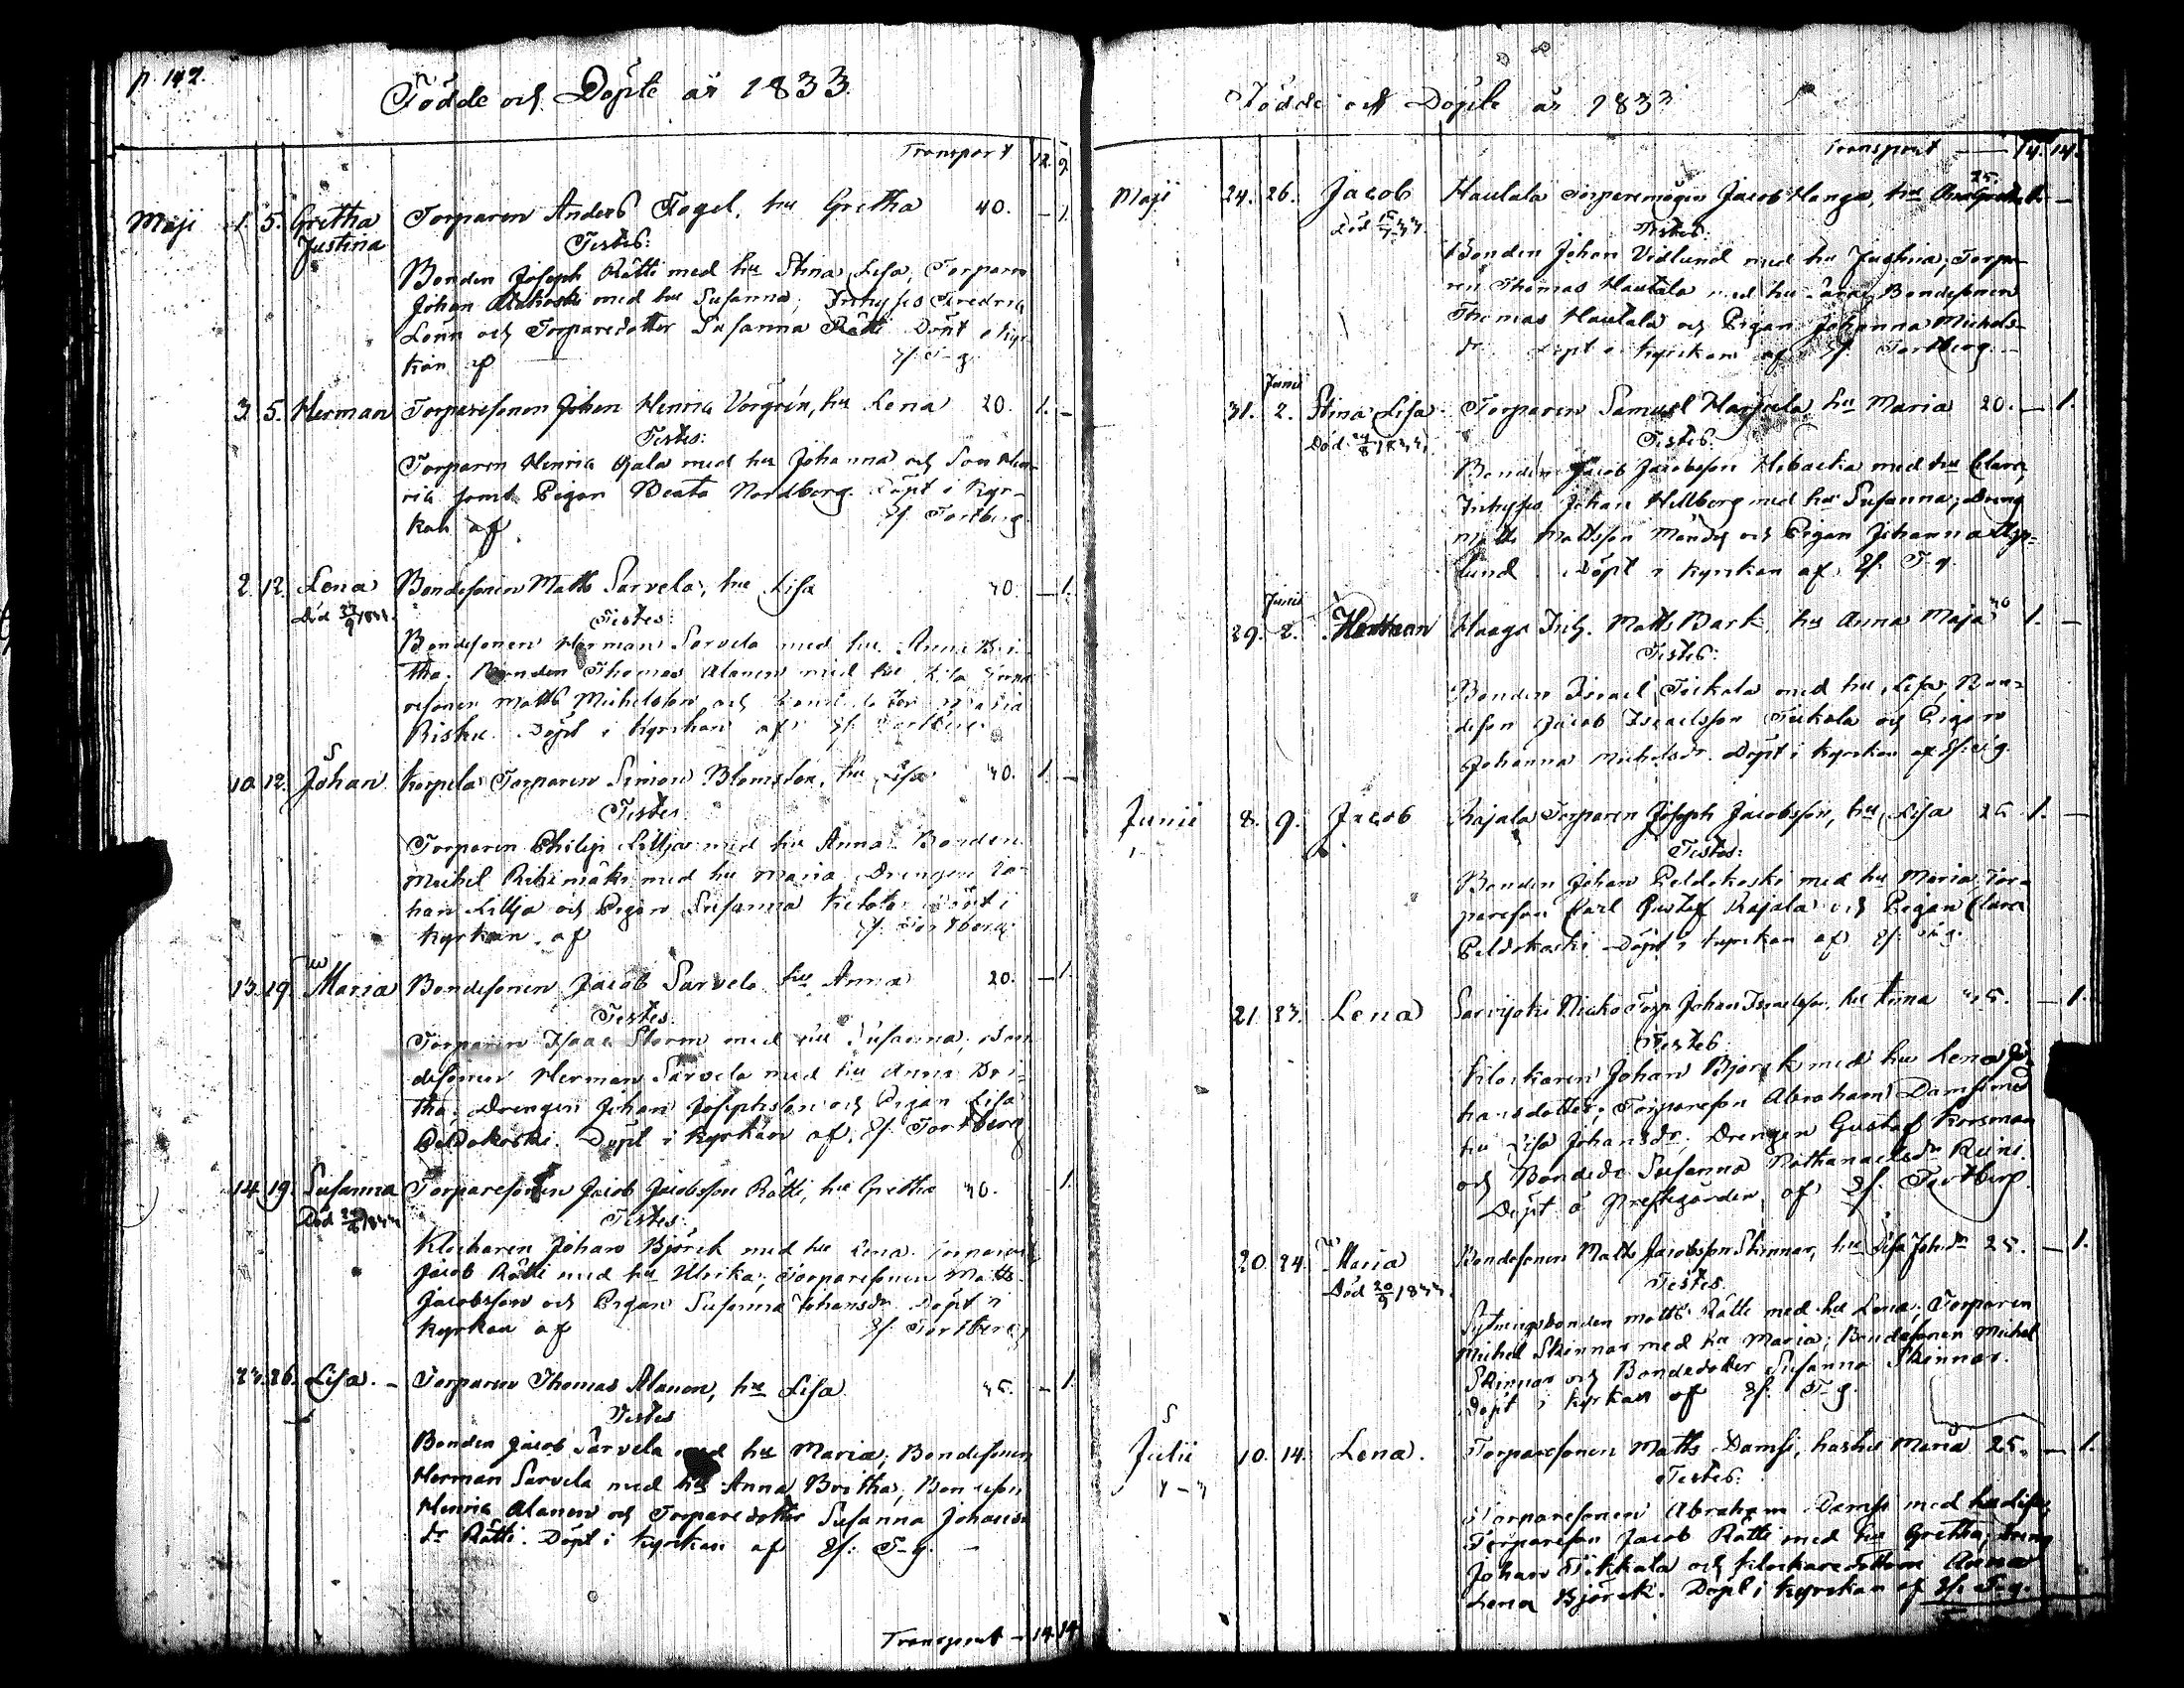 p. 142.
Födde och Döpte år 1833.
Transport 12. 9
Maji 1. 5. Gretha Torparen Anders Fogel, hu Gretha 40. – 1.
Justina Testes:
Bonden Joseph Rätti med hu Stina Lisa, Torparn
Johan Alakoski med hu Susanna, Inhyses Fredric
Lönn och Torparedotter Susanna Rätti Döpt i Kyr-
kan af T–g.
3. 5. Herman Torparesonen Johan Henric Vörgrén, hu Lena 20. 1. –
Testes:
Torparen Henric Ojala med hu Johanna och Son Hen-
ric samt Pigan Beata Nordberg. Döpt i Kyr-
kan af Tortberg
2. 12. Lena Bondesonen Matts Sarvela, hu Lisa 40. – 1.
Död Testes:
Bondesonen Herman Sarvela med hu Anna Bri-
tha; Bonden Thomas Alanen med hu Lisa
Matts Michelsson och Maria
Risku. Döpt i Kyrkan af
10. 12. Johan Korpela Torparen Simon Blomster, hu Lisa 40. 1. –
Testes.
Torparen Philip Lillja med hu Anna Bonden
Michel Rihimäki med hu Maria Drengen Jo-
han Lillja och Pigan Susanna Döpt i
Kyrkan af Tortberg
13. 19. Maria Bondesonen Jacob Sarvela hu Anna 20. – 1.
Testes.
Torparen Isaac Storm med hu Susanna, Bon-
desonen Herman Sarvela med hu Anna Bri-
tha. Drengen Johan Josephsson och Pigan Lisa
Peldokoski. Döpt i Kyrkan af Tortberg
14. 19. Susanna Torparesonen Jacob Jacobsson Rätti, hu Gretha – 1.
Död Testes.
Klockaren Johan Björck med hu Lena
Jacob Rätti med hu Ulrika; Torparesonen Matts
Jacobsson och Pigan Susanna Johansdr Döpt i
Kyrkan af Tortberg
26. Lisa. – Torparen Thomas Alanen, hu Lisa – 1.
Testes
Bonden Jacob Sarvela med hu Maria; Bondesonen
Herman Sarvela med hu Anna Britha, Bondeson
Henric Alanen och Torparedotter Susanna Johans
dr Rätti. Döpt i Kyrkan af T–g. –
Transport – 14 14
Födde och Döpte år 1833
Transport — 14. 14.
Maji 24. 26. Jacob Hautala Torparemågen Jacob Hanga, hu 25. –
Död Testes:
Bonden Johan Vidlund med hu Justina, Torpa-
ren Thomas Hautala med hu Bondesonen
Thomas Hautala och Pigan Johanna Michels-
dr Döpt i Kyrkan af Tortberg. –
Junii
31. 2. Stina Lisa Torparen Samuel Harjula hu Maria 20. – 1.
Död Testes.
Bonden Jacob Jacobsson Hibacka med hu Clara,
Inhyses Johan Hellberg med hu Susanna; Dreng
Matts Mattsson och Pigan Johanna
lund Döpt i Kyrkan af T–g.
Junii
29. 2. Herman Haaga Inh. Matts Bark, hu Anna Maja 1. –
Testes:
Bonden Israel Tickala med hu Lisa, Bon-
deson Jacob Israelsson Tickala och Pigan
Johanna Michelsdr. Döpt i Kyrkan af T–g.
Junii 8. 9. Jacob Rajala Torparen Joseph Jacobsson, hu Lisa 25 1. –
Testes:
Bonden Johan Peldokoski med hu Maria Tor-
pareson Carl Gustaf Rajala och Pigan Clara
Peldokoski Döpt i Kyrkan af T–g.
21 23. Lena Sarvijoki Torp. Johan Israelsson, hu Anna – 1.
Testes
Klockaren Johan Björck med hu Lena Jo-
hansdotter; Torpareson Abraham Damsi med
hu Lisa Johansdr. Drengen Gustaf Korsman
och Bondedr Susanna Nathanaelsdr Reini.
Döpt å Prestgården af Tortberg.
20. 24. Maria Bondesonen Matts Jacobsson Skinnar, hu Lisa Johsdr 25. – 1.
Död Testes.
Sytningsbonden Matts Rätti med hu Lena; Torparen
Michel Skinnar med hu Maria; Bondesonen Michel
Skinnar och Bondedotter Susanna Skinnar.
Döpt i Kyrkan af T–g.
Julii 10. 14. Lena. Torparesonen Matts Damsi, hushu Maria 25. – 1.
Testes:
Torparesonen Abraham Damsi med hu Lisa,
Torpareson Jacob Rätti med hu Gretha, Dreng
Johan Tickkala och Klockaredottren Anna
Lena Björck. Döpt i Kyrkan af T–g.